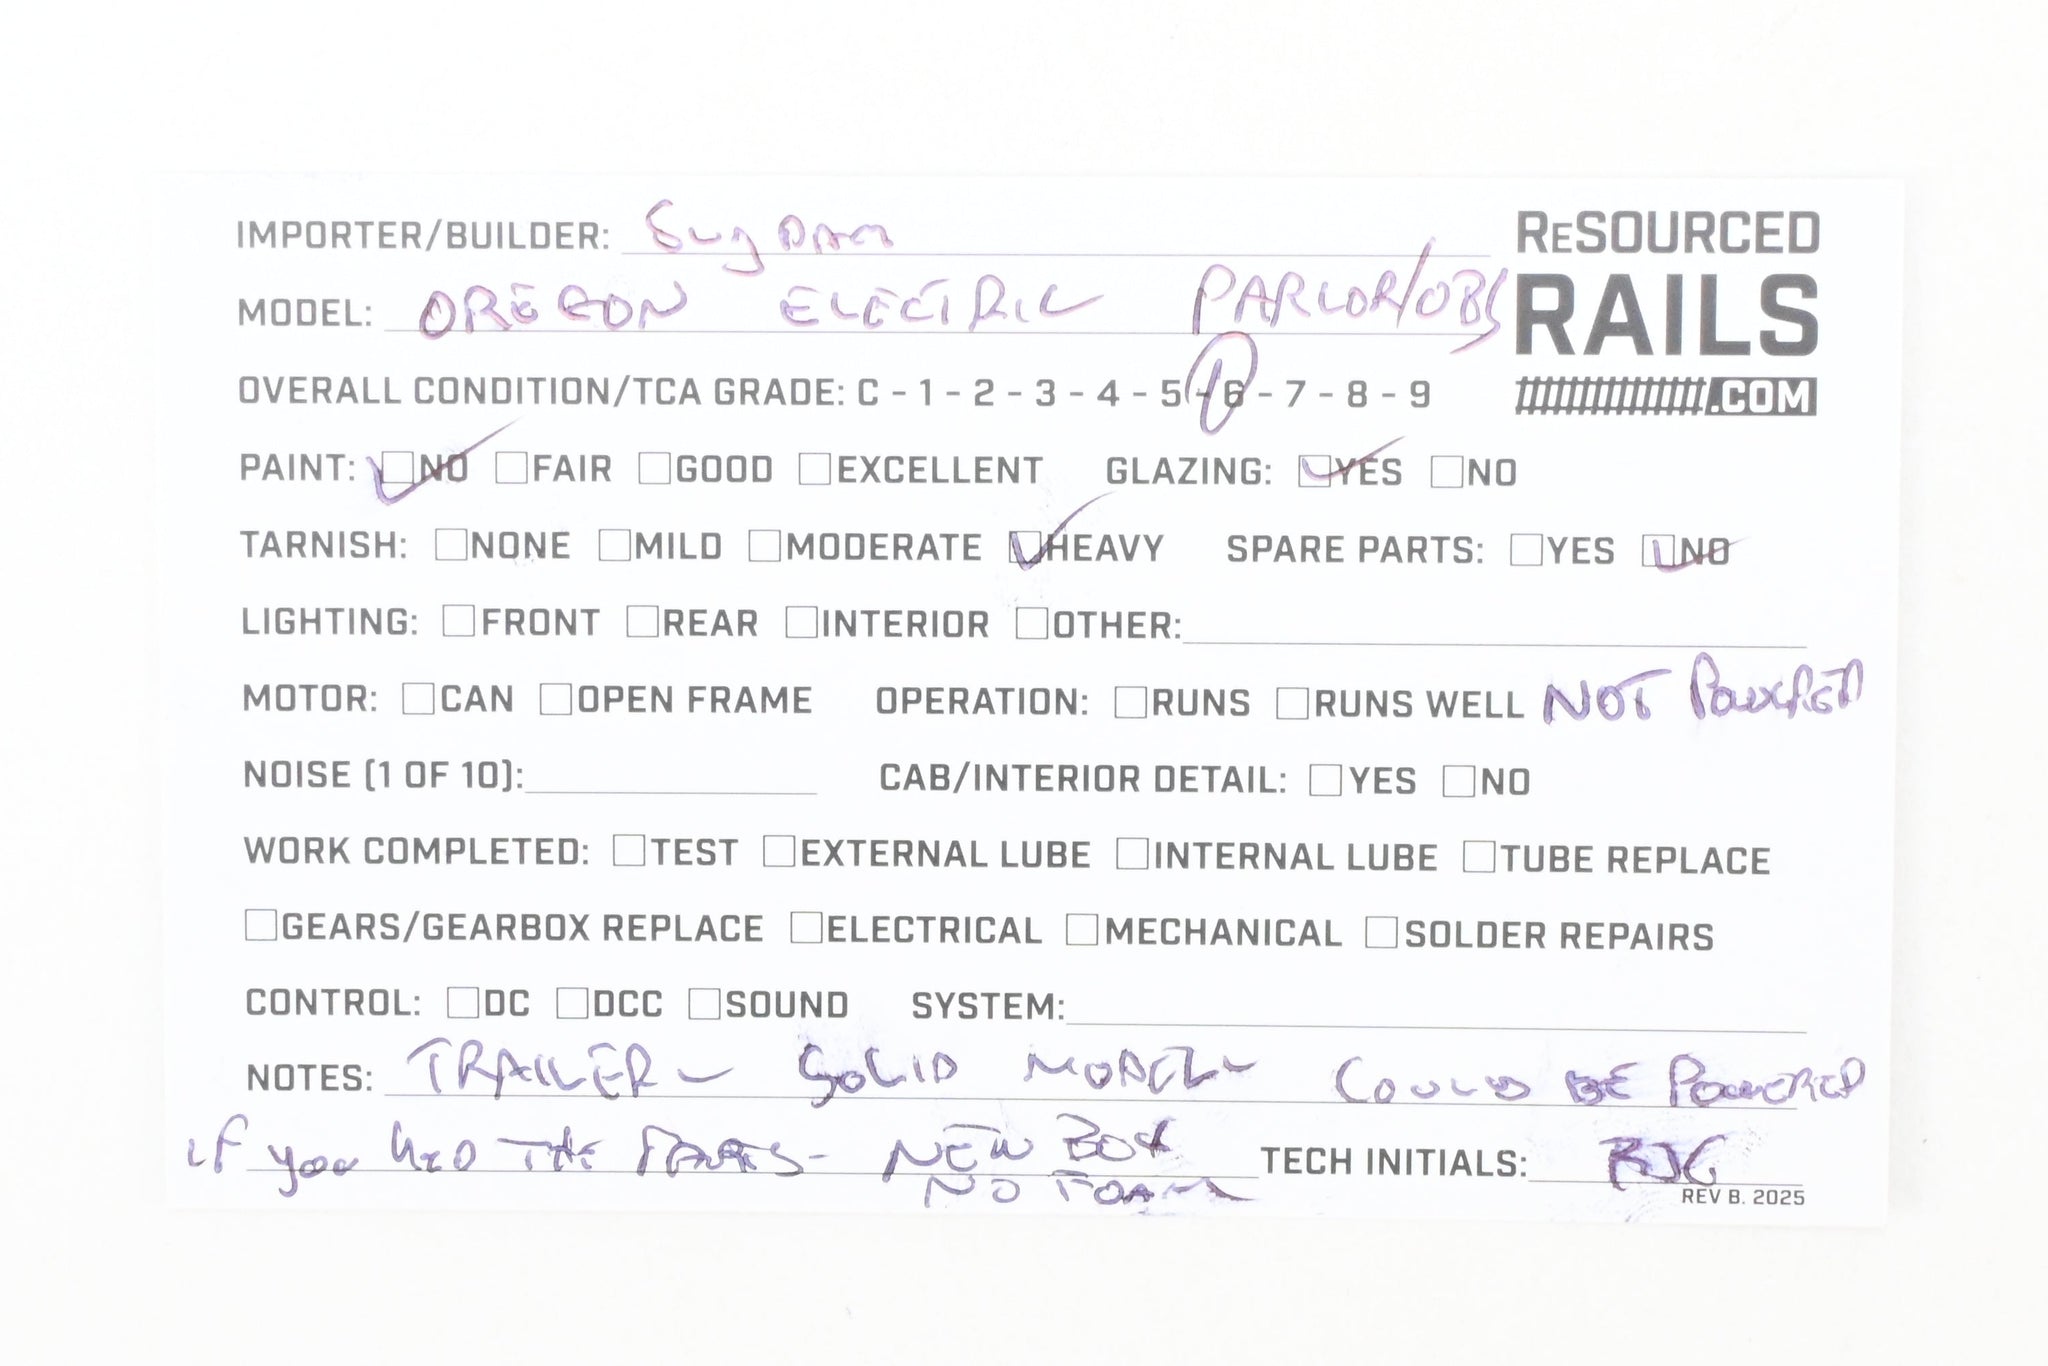 IMPORTER/BUILDER: Suydam
ReSOURCED
RAILS
.COM
MODEL: OREGON ELECTRIC PARLOR/OBS
OVERALL CONDITION/TCA GRADE: C - 1 - 2 - 3 - 4 - 5 - 6 - 7 - 8 - 9
PAINT: NO FAIR GOOD EXCELLENT GLAZING: YES NO
TARNISH: NONE MILD MODERATE HEAVY SPARE PARTS: YES NO
LIGHTING: FRONT REAR INTERIOR OTHER:
MOTOR: CAN OPEN FRAME OPERATION: RUNS RUNS WELL NOT POWERED
NOISE (1 OF 10): CAB/INTERIOR DETAIL: YES NO
WORK COMPLETED: TEST EXTERNAL LUBE INTERNAL LUBE TUBE REPLACE
GEARS/GEARBOX REPLACE ELECTRICAL MECHANICAL SOLDER REPAIRS
CONTROL: DC DCC SOUND SYSTEM:
NOTES: TRAILER - SOLID MODEL - COULD BE POWERED
if you HAD THE PARTS - NEW BOX TECH INITIALS: RJG
NO FOAM
REV B. 2025